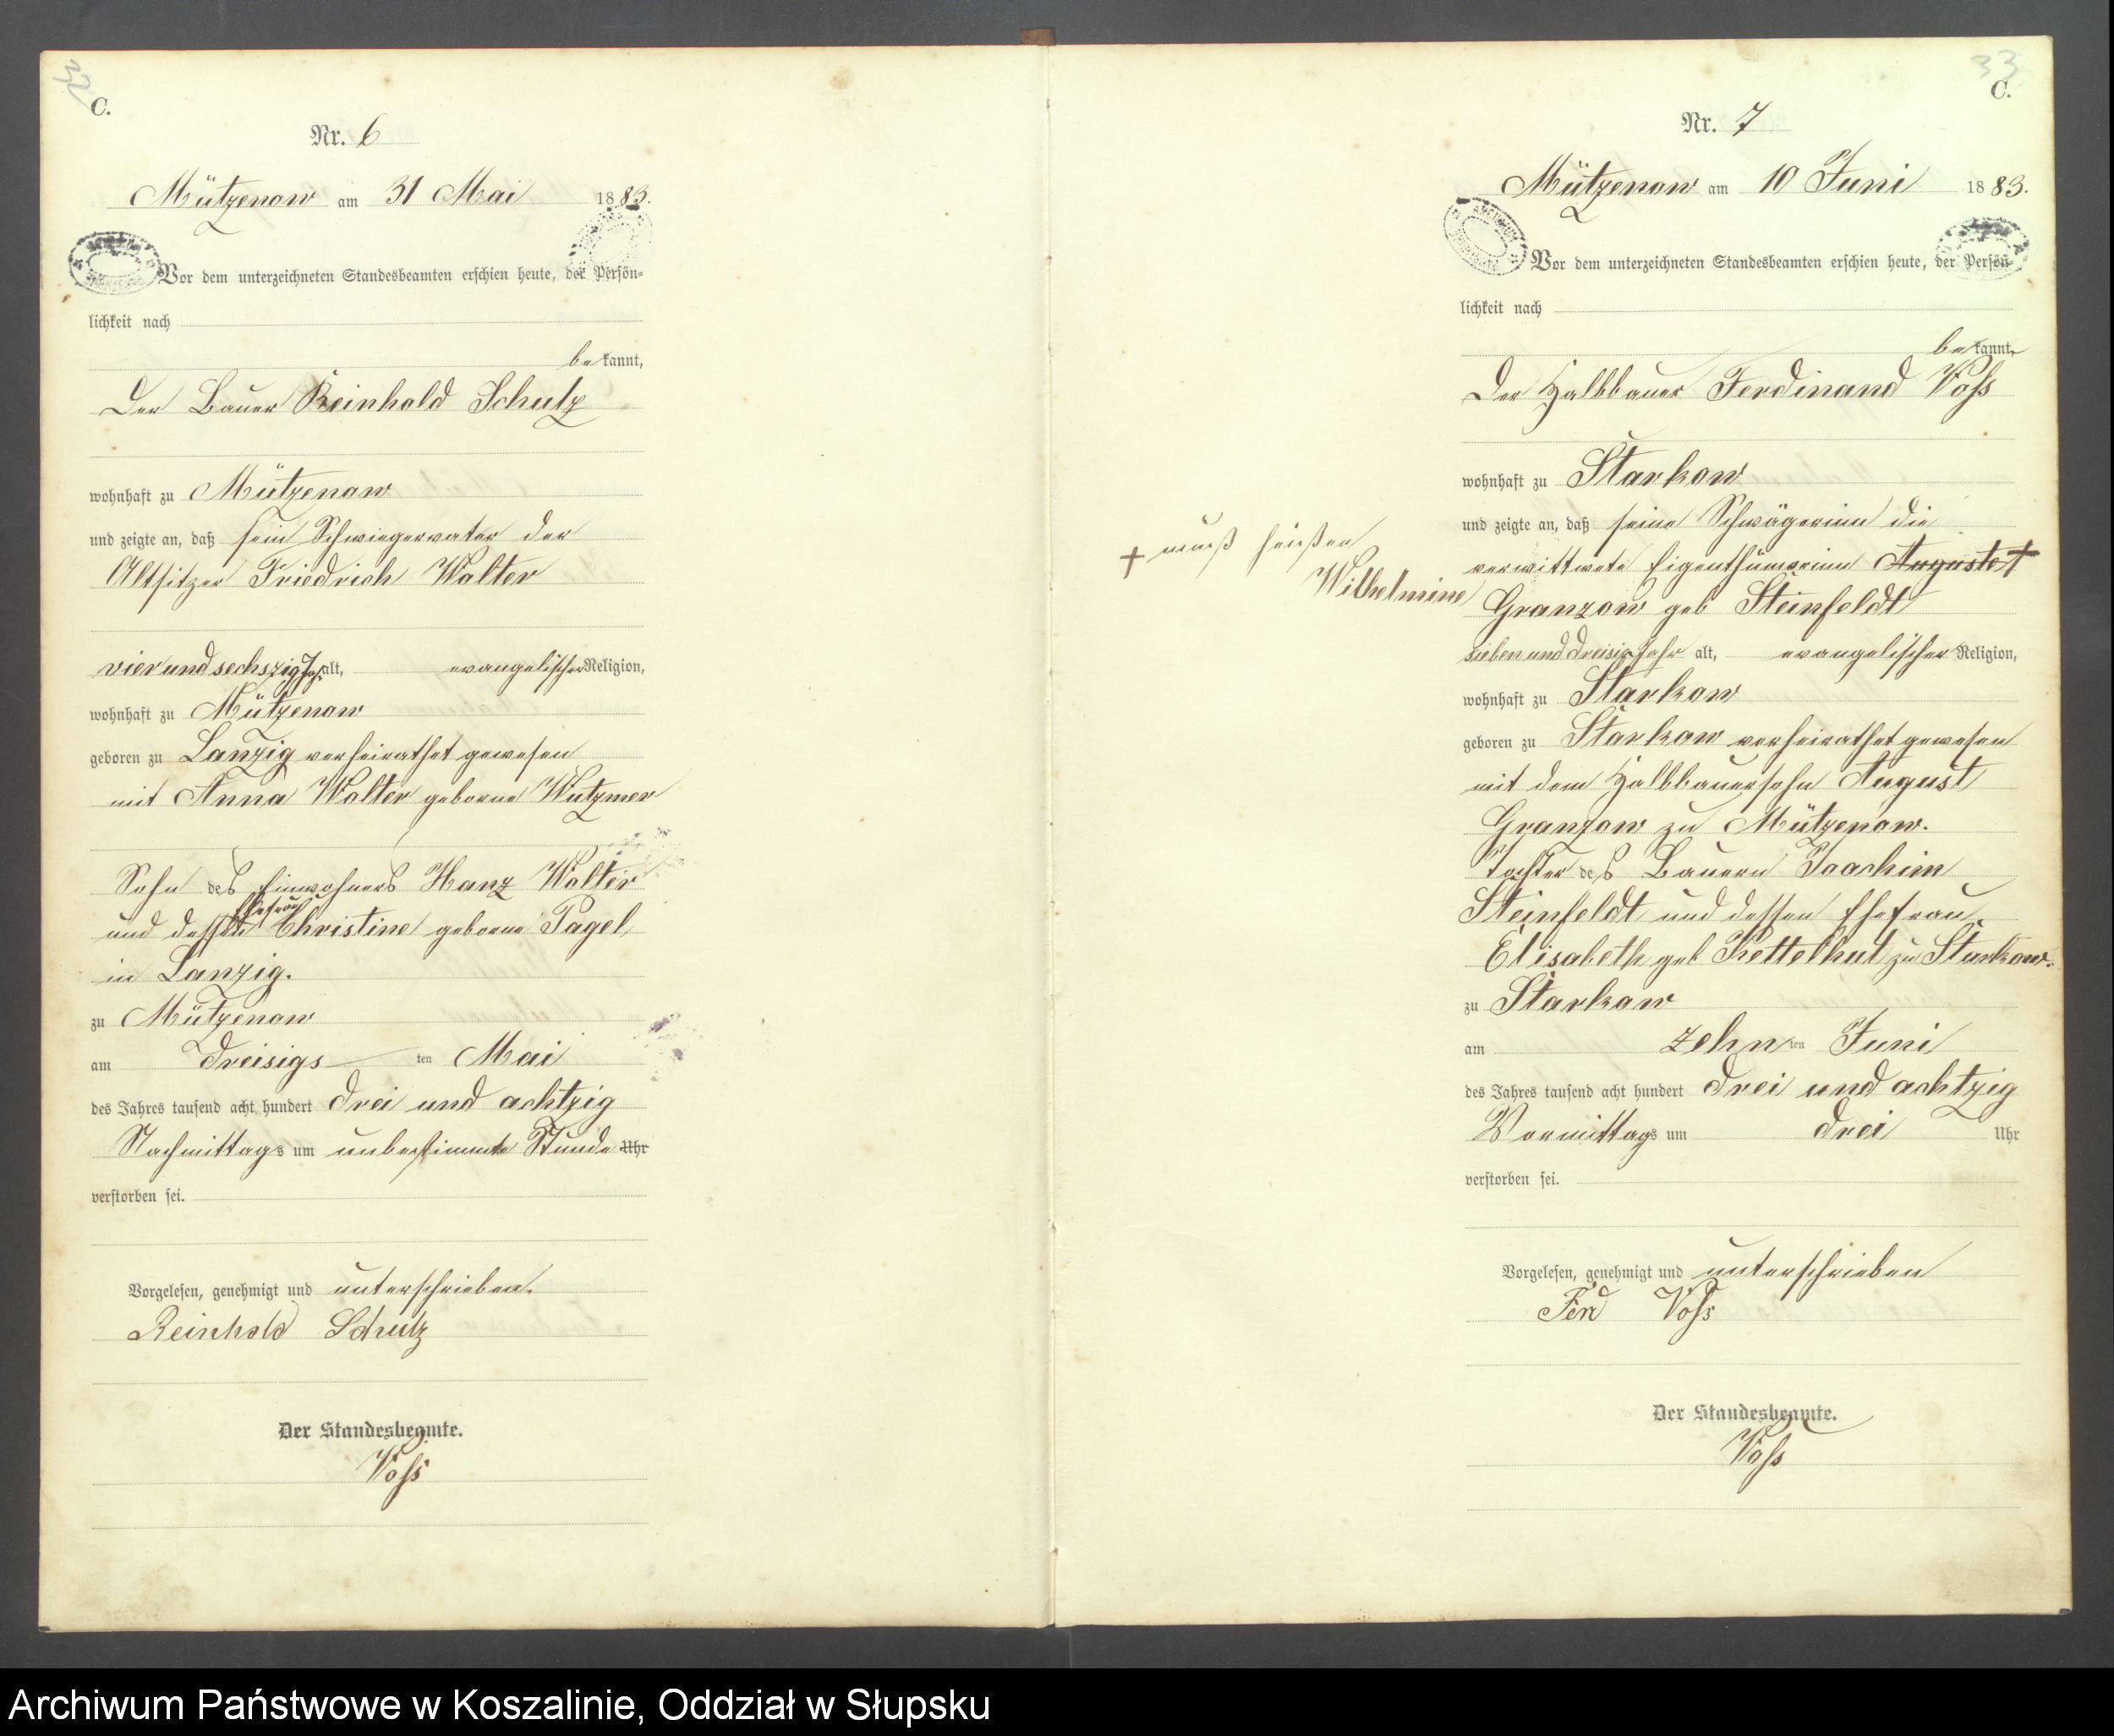 32
C.
Nr. 6
Mützenow am 31 Mai 1883.
Vor dem unterzeichneten Standesbeamten erschien heute, der Persön-
lichkeit nach
bekannt,
Der Bauer Reinhold Schulz
wohnhaft zu Mützenow
und zeigte an, daß sein Schwiegervater der
Altsitzer Friedrich Walter
vier und sechszig Jahr alt, evangelischer Religion,
wohnhaft zu Mützenow
geboren zu Lanzig verheirathet gewesen
mit Anna Walter geborne Wutzmer
Sohn des Einwohners Hanz Walter
und dessen Ehefrau Christine geborne Pagel
in Lanzig.
zu Mützenow
am dreisigsten Mai
des Jahres tausend acht hundert drei und achtzig
Nachmittags um unbestimmte Stunde Uhr
verstorben sei.
Vorgelesen, genehmigt und unterschrieben.
Reinhold Schulz
Der Standesbeamte.
Voß
33
C.
Nr. 7
Mützenow am 10 Juni 1883.
Vor dem unterzeichneten Standesbeamten erschien heute, der Persön-
lichkeit nach
bekannt,
Der Halbbauer Ferdinand Voß
wohnhaft zu Starkow
und zeigte an, daß seine Schwägerinn die
verwittwete Eigenthümerinn Auguste +
+ muß heißen
Wilhelmine
Granzow geb Steinfeldt
sieben und dreisig Jahr alt, evangelischer Religion,
wohnhaft zu Starkow
geboren zu Starkow verheirathet gewesen
mit dem Halbbauersohn August
Granzow zu Mützenow.
Tochter des Bauern Joachim
Steinfeldt und dessen Ehefrau
Elisabeth geb Kettelhut zu Starkow.
zu Starkow
am zehnten Juni
des Jahres tausend acht hundert drei und achtzig
Vormittags um drei Uhr
verstorben sei.
Vorgelesen, genehmigt und unterschrieben
Ferd Voß
Der Standesbeamte.
Voß
Archiwum Państwowe w Koszalinie, Oddział w Słupsku